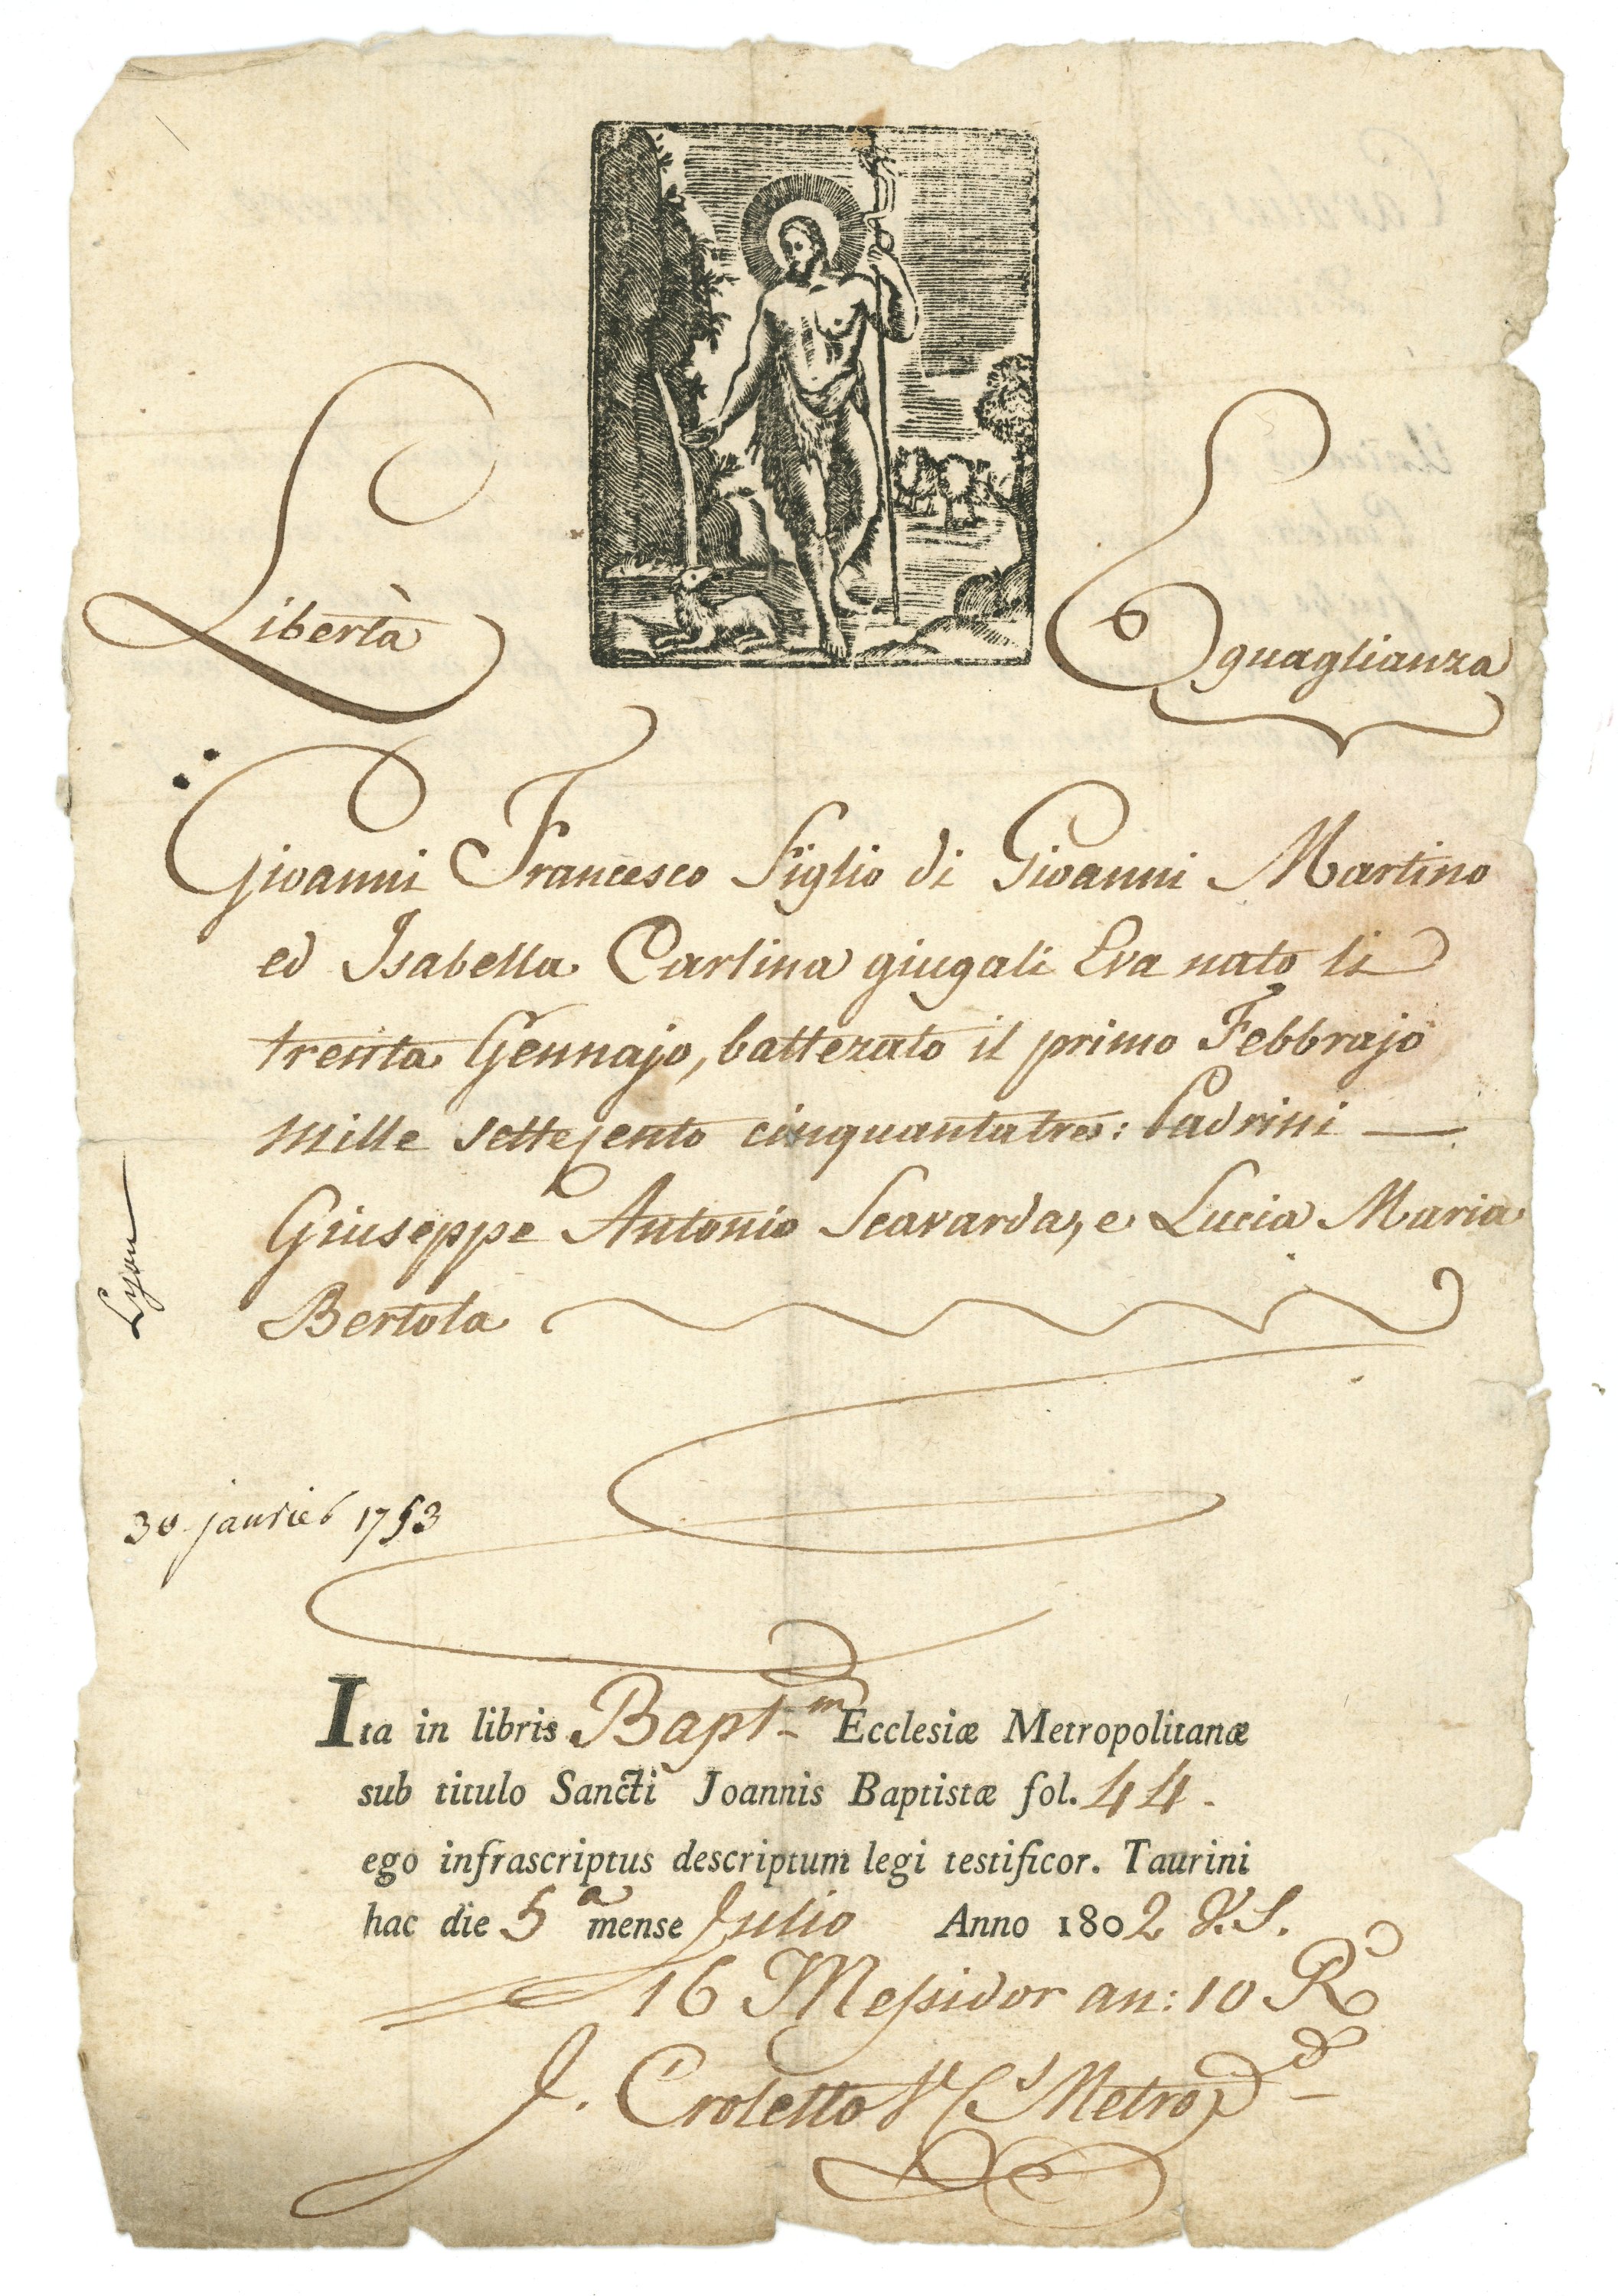 Libertà
Eguaglianza
Giovanni Francesco figlio di Giovanni Martino
ed Isabella Carlina giugali Eva nato li
trenta Gennajo, battezato il primo Febbrajo
mille settecento cinquantatre: Padrini —
Giuseppe Antonio Scavarda, e Lucia Maria
Bertola
Lyon
30 janvier 1753
Ita in libris Bapt.m Ecclesiæ Metropolitanæ
sub titulo Sancti Joannis Baptistæ fol. 44.
ego infrascriptus descriptum legi testificor. Taurini
hac die 5a mense Julio Anno 1802 V.S.
16 Messidor an: 10 R
J. Croletto Metro